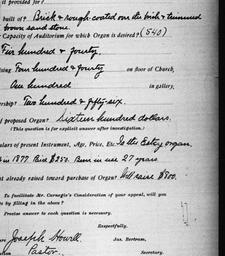 is provided for?
built of? Brick & rough coated over the brick & trimmed
brown sand stone.
Capacity of Auditorium for which Organ is desired? (540)
Five hundred & fourty.
Four hundred & fourty on floor of Church,
One hundred in gallery,
Two hundred & fifty-six.
of proposed Organ? Sixteen hundred dollars.
(This question is for explicit answer after investigation.)
ulars of present Instrument, Age, Price, Etc. Is the Estey organ.
in 1877. Price $250. Been in use 27 years.
nt already raised toward purchase of Organ? Will raise $800.
To facilitate Mr. Carnegie's Consideration of your appeal, will you
be by filling in the above?
Precise answer to each question is necessary.
Respectfully,
Joseph Howell. Jas. Bertram,
Pastor. Secretary.